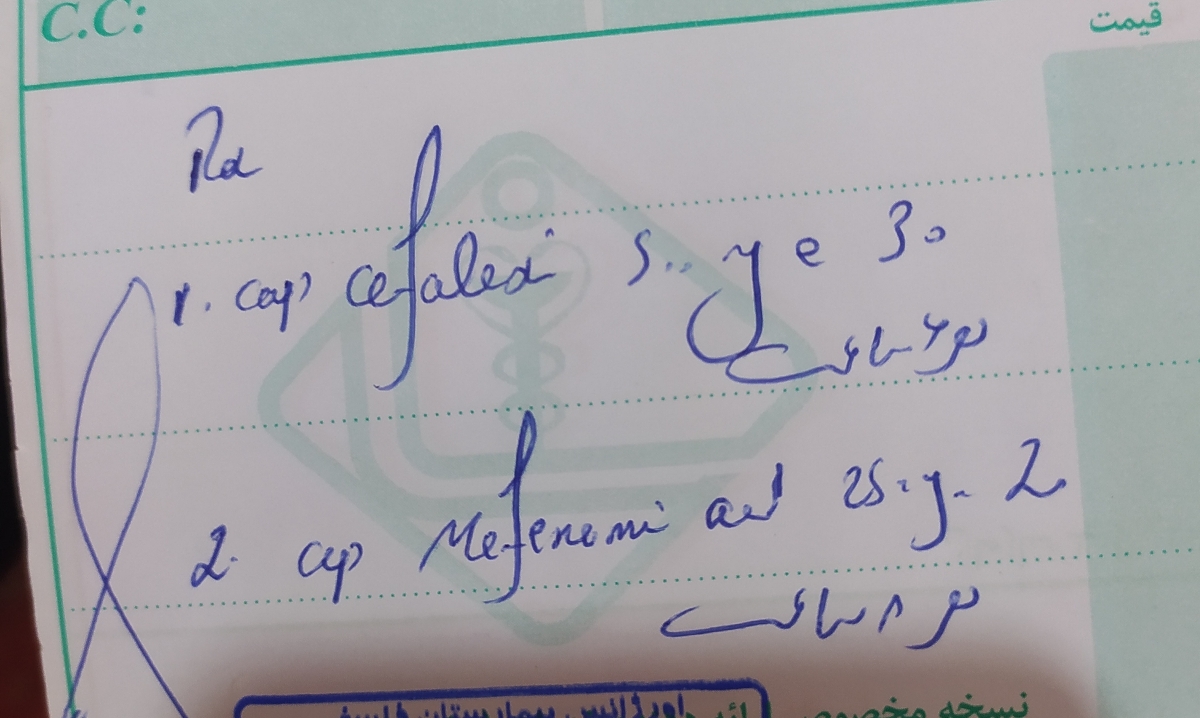 C.C:
قیمت
Rx
1. cap cefalexi 500 mg e 30
هر ۶ ساعت
2. cap Mefenami acid 250 mg 2
هر ۸ ساعت
اورژانس بیمارستان
نسخه مخصوص